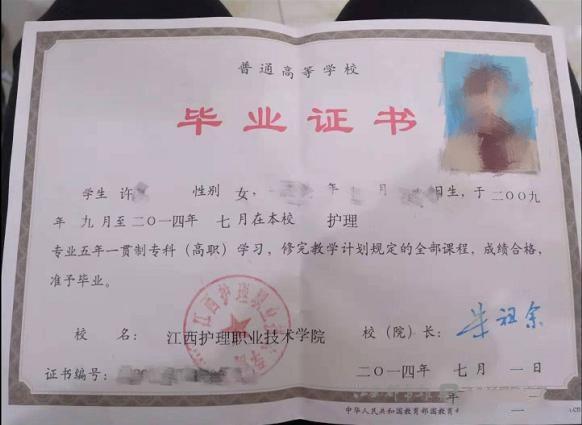 普通高等学校
毕业证书
学生 许 性别 女, 年 月 日生,于二〇〇九
年 九月至二〇一四年 七月在本校 护理
专业五年一贯制专科(高职)学习,修完教学计划规定的全部课程,成绩合格,
准予毕业。
校 名: 江西护理职业技术学院 校(院)长: 朱祖余
证书编号: 二〇一四年 七月 一日
年 一
中华人民共和国教育部国教育